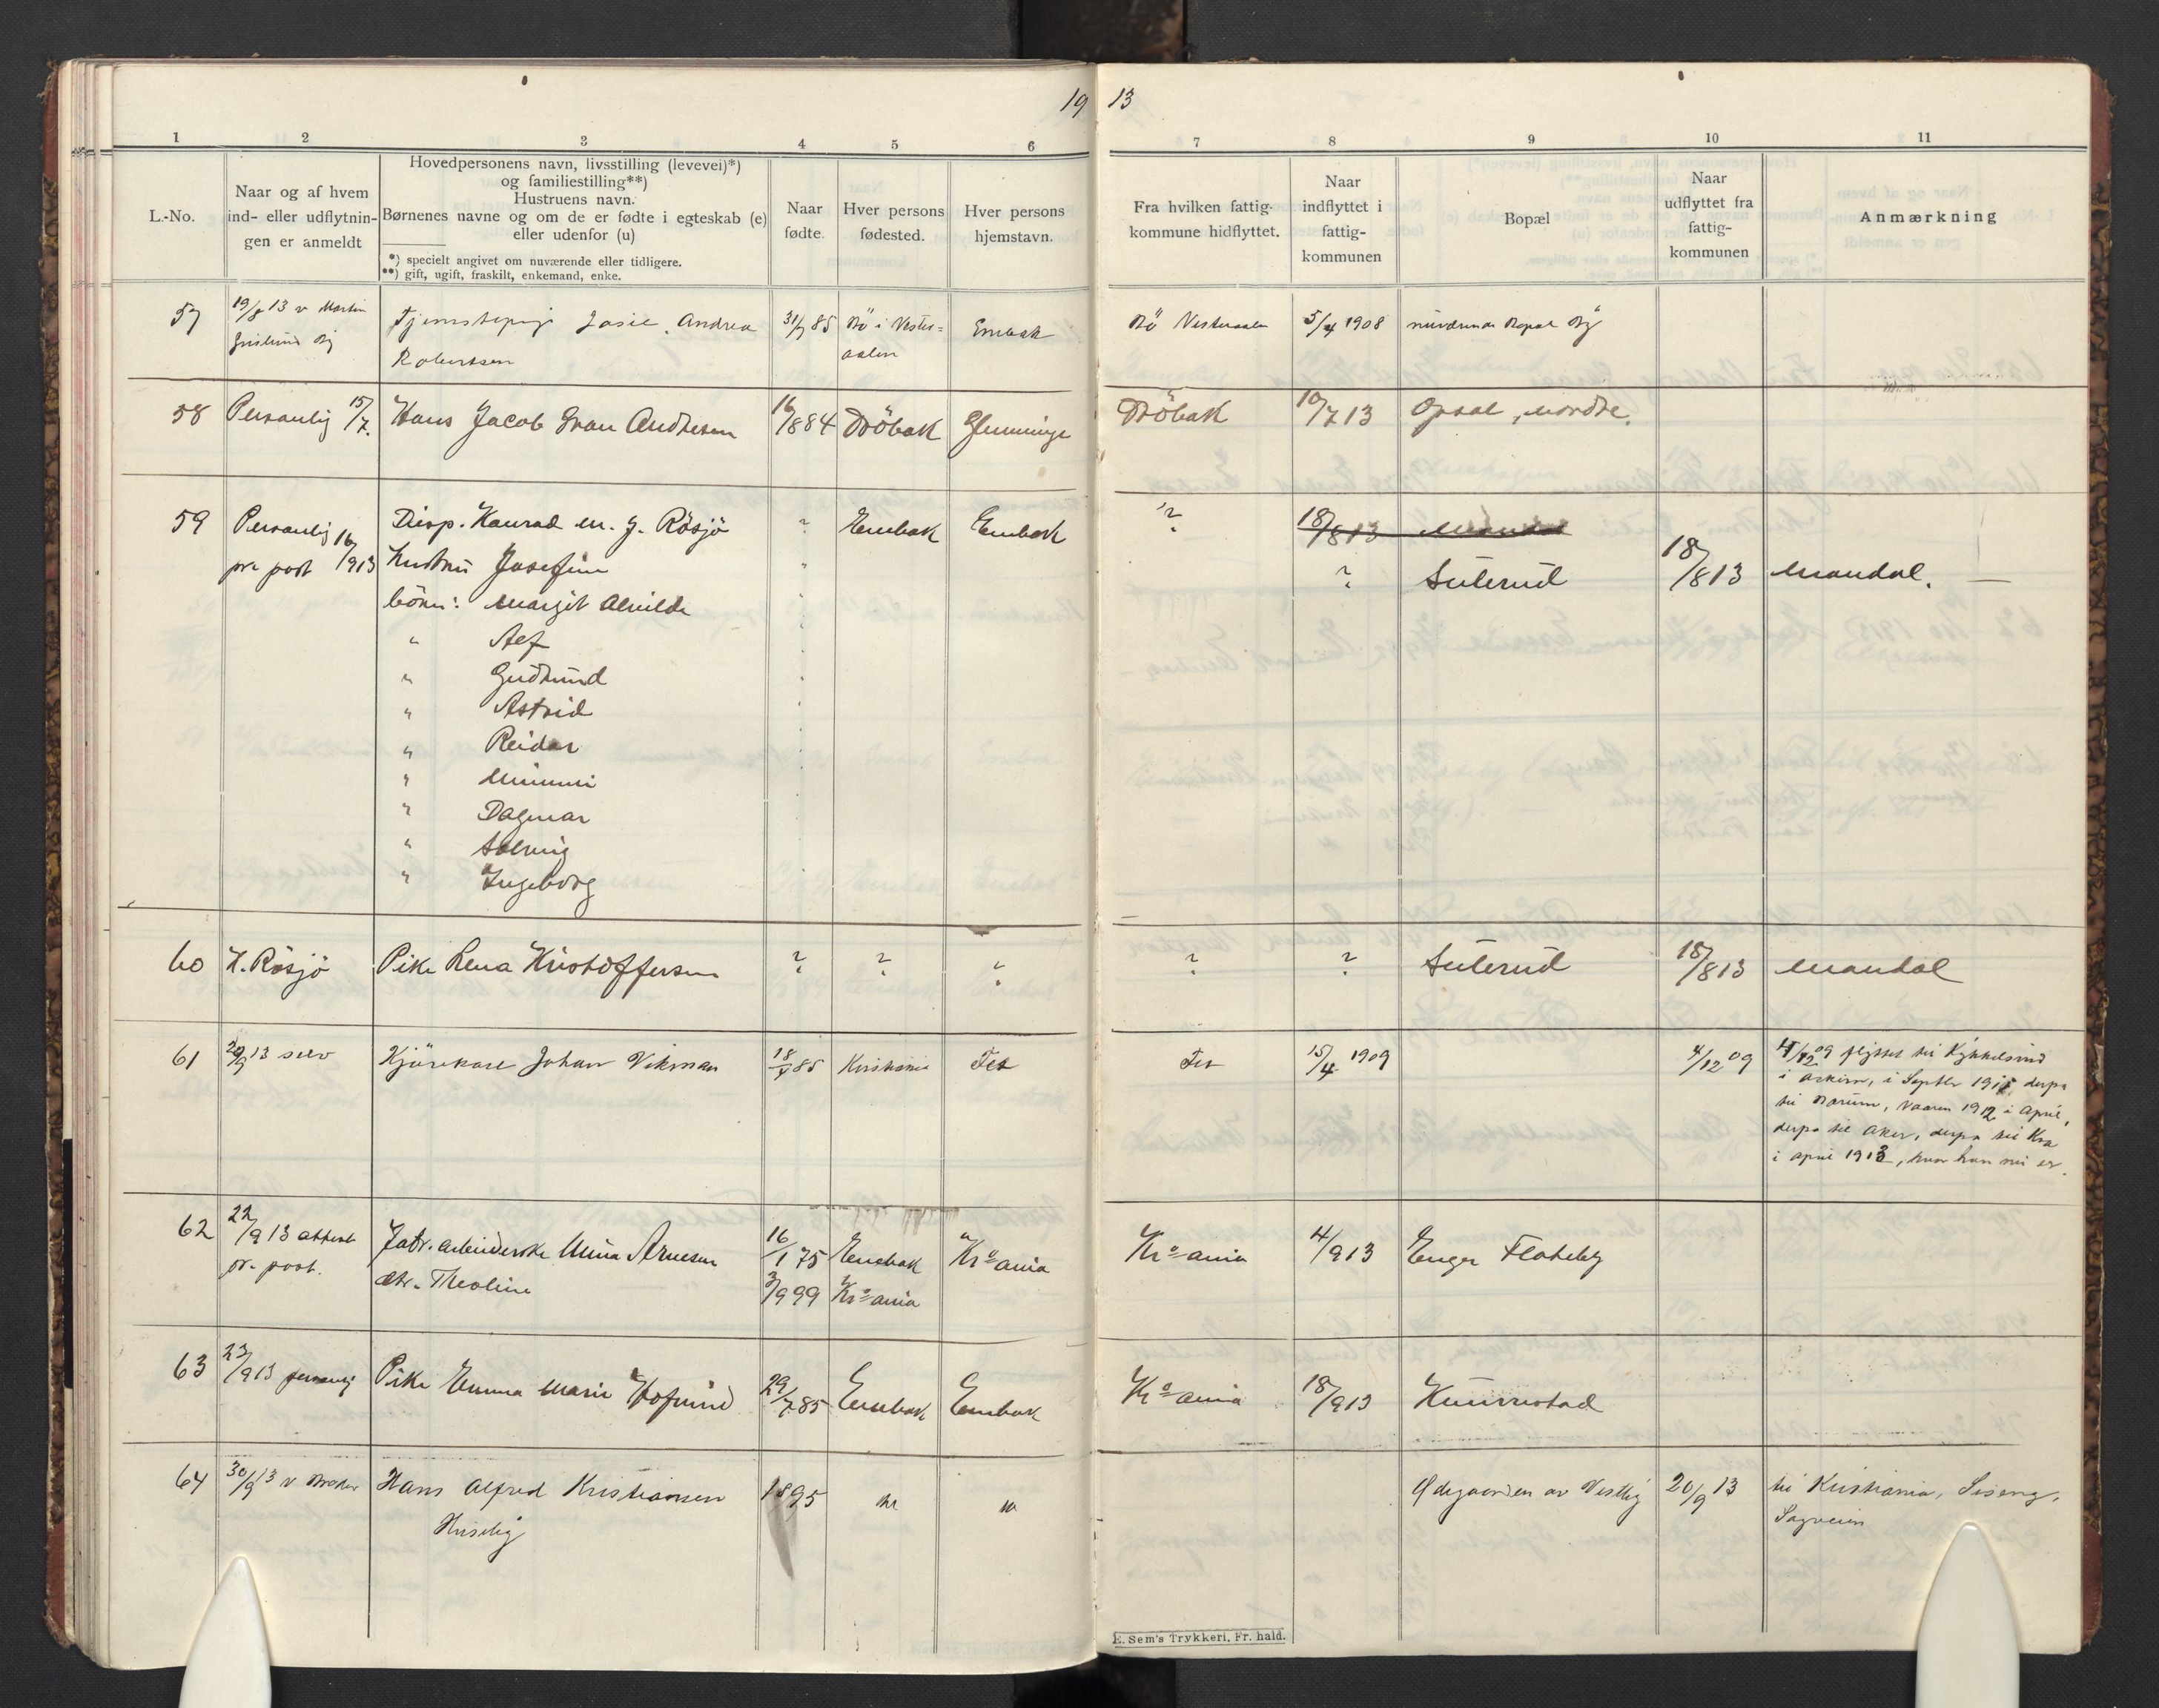 19 13
1 2 3 4 5 6 7 8 9 10 11
L.-No.
Naar og af hvem
ind- eller udflytnin-
gen er anmeldt
Hovedpersonens navn, livsstilling (levevei)*)
og familiestilling**)
Hustruens navn.
Børnenes navne og om de er fødte i egteskab (e)
eller udenfor (u)
*) specielt angivet om nuværende eller tidligere.
**) gift, ugift, fraskilt, enkemand, enke.
Naar
fødte.
Hver persons
fødested.
Hver persons
hjemstavn.
Fra hvilken fattig-
kommune hidflyttet.
Naar
indflyttet i
fattig-
kommunen
Bopæl
Naar
udflyttet fra
fattig-
kommunen
Anmærkning
57 19/6 13 v Martin Tjenestepige Josie Andrea 31/7 85 Bö i Vester= Enebak Bö Vesteraalen 5/4 1908 nuværende Bopæl By
By Robertsen aalen
58 Personlig 15/7. Hans Jacob Gran Andresen 16/8 84 Dröbak Glemminge Dröbak 10/7 13 Opsal, nordre.
59 Personlig Disp. Konrad m. g. Rösjö " Enebak Enebak ? 18/8 13 Mandal
pr. post 16/9 13 Hustru Josefine " ? Sulerud 18/8 13 Mandal. —
börn: Margit Alvilde "
" Alf
" Gudrund
" Astrid
" Reidar
" Mimmi
" Dagmar
" Solveig
" Ingeborg
60 K. Rösjö Pike Lena Kristoffersen ? ? ? ? ? Sulerud 18/8 13 Mandal
61 29/9 13 selv Kjörekarl Johan Vikman 18/4 85 Kristiania Fet Fet 15/4 1909 4/12 09 4/12 09 flyttet til Kykkelsrud
i Askim, i Septbr 1911, derpa
til Bærum, vaaren 1912 i April,
derpa til Aker, derpa til Kra
i april 1913, hvor han nu er.
62 22/9 13 attest Fabr. arbeiderske Mina Arnesen 16/1 75 Enebak Kr=ania Kr=ania 4/9 13 Enger Flateby
pr. post. dtr. Theoline 3/9 99 Kr=ania
63 23/9 13 personlig Pike Emma Marie Hofsrud 29/7 85 Enebak Enebak Kr=ania 18/9 13 Kinnestad
64 30/9 13 v Broder Hans Alfred Kristiansen 1895 hr " Ødegaarden av Vestby 20/9 13 til Kristiania,
Huseby Sagveien
E. Sem's Trykkeri, Fr. hald.